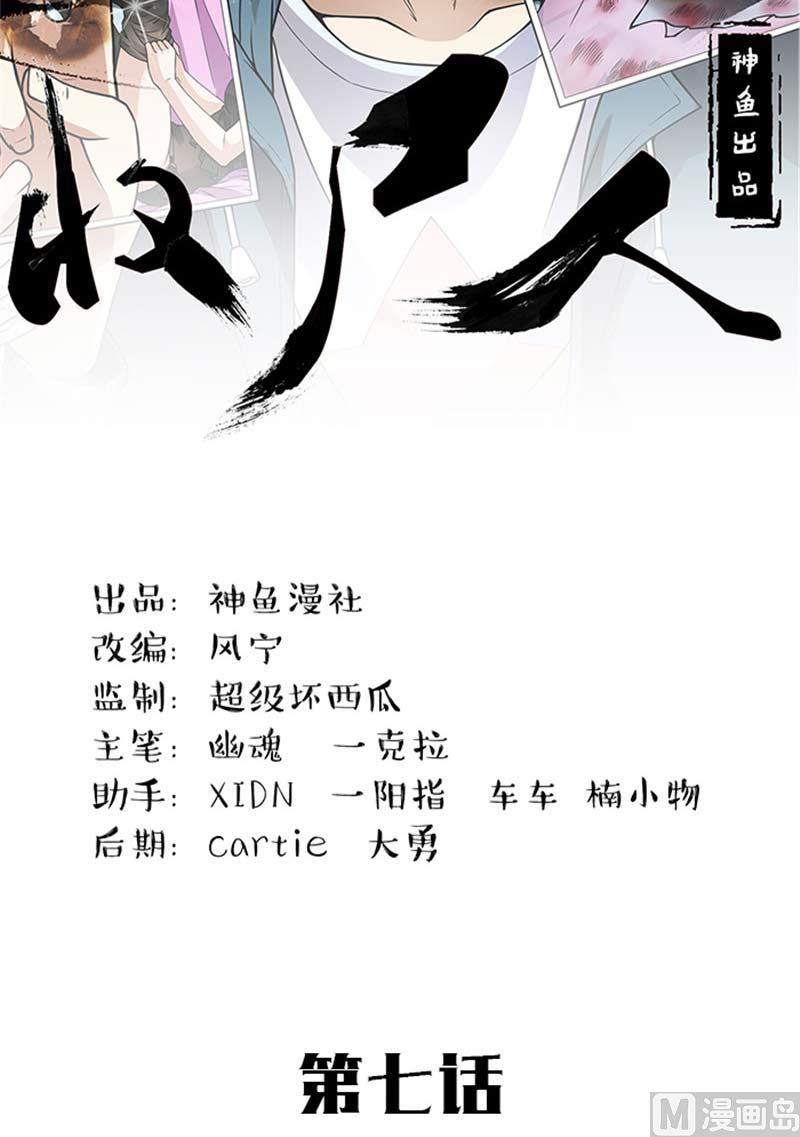 神鱼出品
收尸人
出品: 神鱼漫社
改编: 风宁
监制: 超级坏西瓜
主笔: 幽魂 一克拉
助手: XIDN 一阳指 车车 楠小物
后期: cartie 大勇
第七话
M 漫画岛